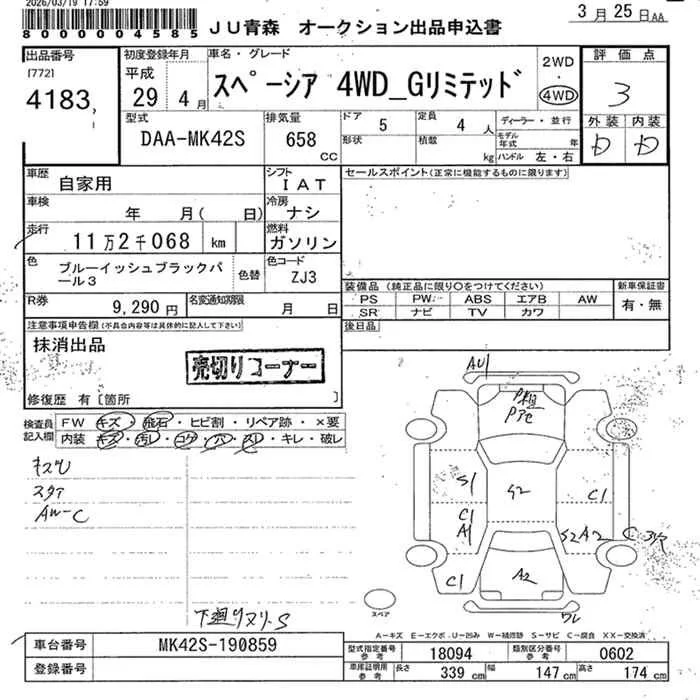 2026/03/19 17:59
8000004585
JU青森 オークション出品申込書
3月25日AA
出品番号
[772]
4183
初度登録年月
平成
29 4月
車名・グレード
スペーシア 4WD_Gリミテッド
2WD
・
4WD
評価点
3
外装 内装
D D
型式
DAA-MK42S
排気量
658
CC
ドア 5
定員 4人
形状
積載 kg
ディーラー・並行
モデル年式 年
ハンドル 左・右
車歴
自家用
シフト
IAT
セールスポイント(正常に機能するものに限ります)
車検
年 月( 日)
冷房
ナシ
走行
11万2千068 km
燃料
ガソリン
色
ブルーイッシュブラックパール3
色替
色コード
ZJ3
装備品(純正品に限り○をつけてください)
PS PW ABS エアB AW
SR ナビ TV カワ
新車保証書
有・無
R券
9,290円
名変通知期限
月 日
後日品
注意事項申告欄(不具合内容等は具体的に記入して下さい)
抹消出品
売切りコーナー
修復歴 有[箇所 ]
検査員記入欄
FW キズ・飛石・ヒビ割・リペア跡・×要
内装 キズ・汚レ・コゲ・穴・スレ・キレ・破レ
AW-C
下廻りサビ-S
AU1
S1
S2
C1
C1
A1
S2 A2
C1
A2
ワレ
スペア
A-キズ E-エクボ U-凹み W-補修跡 S-サビ C-腐食 XX-交換済
車台番号
MK42S-190859
登録番号
型式指定番号
参考
18094
類別区分番号
参考
0602
車庫証明用
参考
長さ 339 cm
幅 147 cm
高さ 174 cm